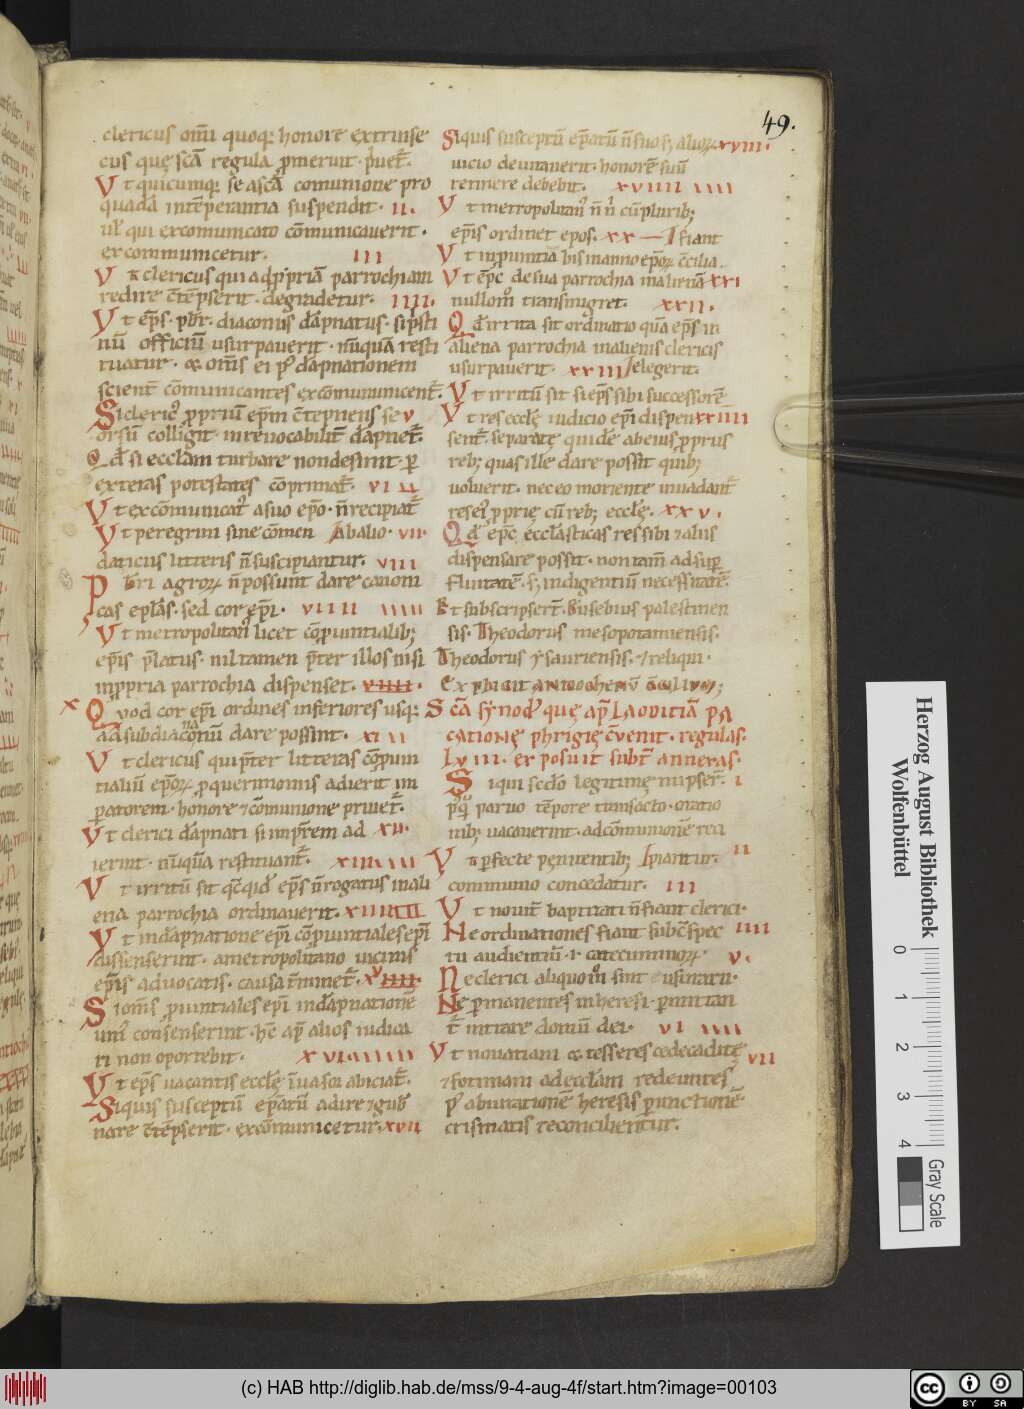 49.
clericus om̄i quoq; honore extrinse
cus quę sc̄a regula p̄meruit · p̄uet̄.
Vt quicumq; se a sc̄a comunione pro
quadā intēperantia suspendit · ii.
ul̄ qui excomunicato cōmunicauerit .
excommunicetur. iii
clericus qui ad p̄priā parrochiam
redire c̄tēpserit · degradetur. iiii.
Vt ep̄s · pb̄r · diaconus dāpnatus · si p̄sti
nū officiū usurpauerit · nūquā resti
tuatur · & om̄s ei p̄ dāpnationem
cōmunicantes excōmunicent̄.
Si cleric' p̄priū ep̄m c̄tēpnens se v
orsū colligit · inreuocabilit̄ dāpnet̄.
Qd̄ si eccl̄am turbare non desierit · p̄
exteras potestates cōprimat̄. vi
Vt excōmunicat' a suo ep̄o · n̄ recipiat̄
Vt peregrini sine cōmen Abalio · vii ·
daticiis litteris n̄ suscipiantur. viii
Pb̄ri agroꝝ n̄ possunt dare canoni
cas epl̄as · sed corep̄i · viiii
Vt metropolitan' licet cōprouintialib;
ep̄is p̄latus · nil tamen p̄ter illos nisi
in p̄pria parrochia dispenset. viiii ·
x Quod corep̄i ordines inferiores usq;
ad subdiaconū dare possint. xi
Vt clericus qui p̄ter litteras cōpuin
tialiū ep̄oꝝ p̄ querimoniis adierit im
p̄atorem · honore & cōmunione priuet̄.
Vt clerici dāpnati si imp̄rem ad xii·
ierint · nūquā restituant̄. xiii
Vt irritū sit q̄cqid̄ ep̄s n̄ rogatus in ali
ena parrochia ordinauerit. xiiii
Vt in dāpnatione ep̄i cōprouintiales ep̄i
dissenserint · a metropolitano uicinis
ep̄is aduocatis · causa t̄minet̄. xv
Si om̄s prouintiales ep̄i in dāpnatione
uni' consenserint · h̄c ap̄ alios iudica
ri non oportebit · xvi
Vt ep̄s uacantis eccl̄ę abiciat̄.
Siquis susceptū ep̄atū adire & gub̄
nare c̄tēpserit · excōmunicetur. xvii
Siquis susceptū ep̄atū n̄ suo s; alioꝝ xviii.
uicio deuitauerit · honorē suū
retinere debebit. xviiii
Vt metropolitan' n̄ n̄ cū plurib;
ep̄is ordinet epos. xx — fiant
Vt in p̄uintia bis in anno ep̄oꝝ c̄cilia.
Vt ep̄c de sua parrochia in alienā xxi
nullom̊ transmigret. xxii.
Qd̄ irrita sit ordinatio quā ep̄s in
aliena parrochia in alienis clericis
usurpauerit. xxiii elegerit.
Vt irritū sit si ep̄s sibi successorē
Vt res eccl̄ę iudicio ep̄i dispen xxiiii
sent̄. separatę quidē ab eius p̄prius
reb; quas ille dare possit quib;
uoluerit · nec eo moriente inuadant̄
res ei' p̄prię cū reb; eccl̄ę. xxv.
Qd̄ ep̄c eccl̄asticas res sibi & aliis
dispensare possit · non tam̄ ad sup̄
fluitatē · s; indigentiū necessitatē.
Et subscripsert̄. Eusebius palestinen
sis. Theodorus mesopotamiensis.
Theodorus ysauriensis. & reliqui ·
Explicit antiochenū c̄ciliū;
Sc̄a synod' quę ap̄ Laoditiā pa
cationę phrigię c̄uenit · regulas.
Lviii. exposuit subt̄ annexas.
Siqui scd̄o legitimę nupser̄. i
p̄q̄ paruo tēpore transacto · oratio
nib; uacauerint · ad cōmunionē reci
Vt p̄fecte pęnitentib; piantur. ii
communio concedatur. iii
Vt nouit̄ baptizati n̄ fiant clerici·
Ne ordinationes fiant sub c̄spec iiii
tu audientiū · l̄ catecuminoꝝ· v.
Ne clerici aliquom̊ sint usurarii·
Ne p̄manentes in heresi · p̄mittan
t̄ intrare domū dei· vi
Vt nouatiani & tesseres cedecaditę vii
& fotiniani ad eccl̄am redeuntes
p̄ abiurationē heresis p̄ unctionē
crismatis reconcilientur.
Herzog August Bibliothek
Wolfenbüttel
0 1 2 3 4
Gray Scale
(c) HAB http://diglib.hab.de/mss/9-4-aug-4f/start.htm?image=00103
cc BY SA